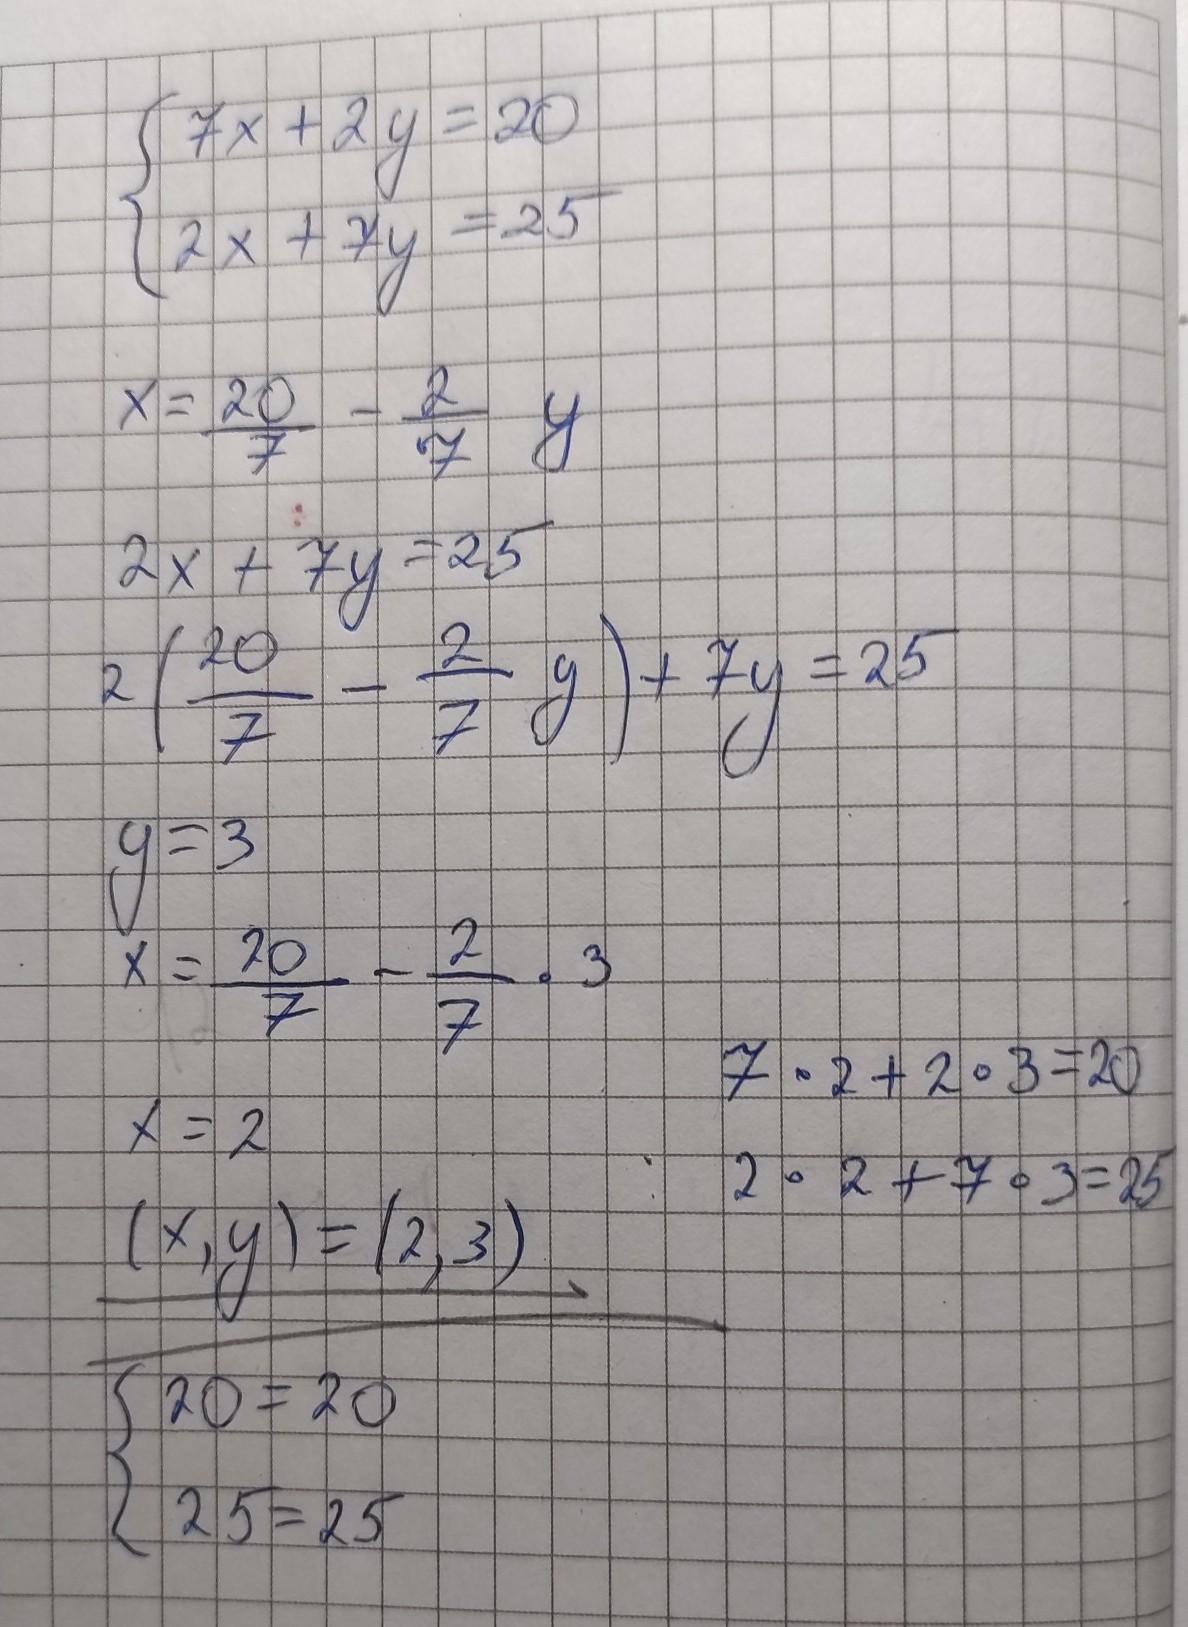 7x + 2y = 20
2x + 7y = 25
x = 20/7 - 2/7 y
2x + 7y = 25
2(20/7 - 2/7 y) + 7y = 25
y = 3
x = 20/7 - 2/7 · 3
7 · 2 + 2 · 3 = 20
x = 2
2 · 2 + 7 · 3 = 25
(x, y) = (2, 3)
20 = 20
25 = 25